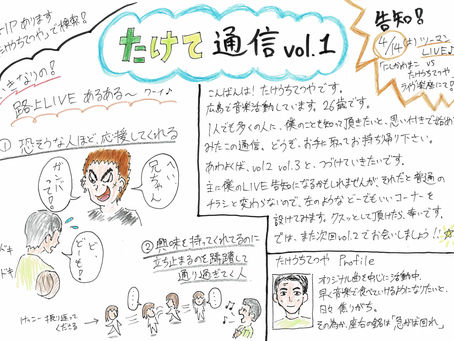 HPあります
たけうちてつやって検索!
たけて通信 vol.1
告知!
4/14(土)ツーマンLIVE♪
「にしかわまこ VS たけうちてつや」
ライヴ楽座にて!
いきなりの!
路上LIVE あるある〜 ワーイ♪
① 恐そうな人ほど、応援してくれる
へい、兄ちゃん
ガンバって!
ど、どーも!
ドキ
ドキ
② 興味を持ってくれてるのに
立ち止まるのを躊躇して
通り過ぎてく人
けっこー振り返って
くださる→
こんばんは!たけうちてつやです。
広島で音楽活動しています。26歳です。
1人でも多くの人に、僕のことを知って頂きたいと、思い付きで始めて
みたこの通信、どうぞ、お手に取ってお持ち帰り下さい。
あわよくば、vol.2 vol.3と、つづけていきたいです。
主に僕のLIVE告知になるかもしれませんが、それだと普通の
チラシと変わらないので、左のようなどーでもいいコーナーを
設けてみます。クスッとして頂けたら、幸いです。
では、また次回vol.2でお会いしましょう!!☆
たけうちてつや Profile
オリジナル曲を中心に活動中。
早く音楽で食べていけるようになりたいと、
日々焦りがち。
その為か、座右の銘は「急がば回れ」